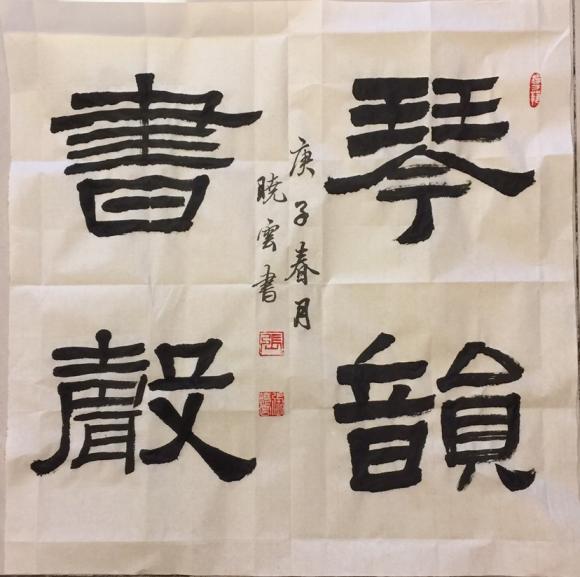 琴韻
書聲
庚子春月
曉雲書